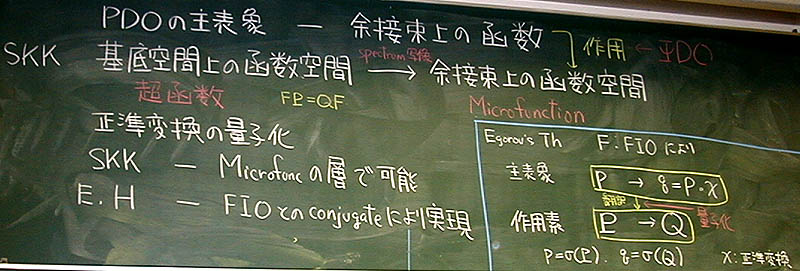 PDOの主表象 — 余接束上の函数
作用 ← ΨDO
SKK 基底空間上の函数空間 spectrum写像 → 余接束上の函数空間
超函数 FP=QF Microfunction
正準変換の量子化
SKK — Microfuncの層で可能
E.H — FIOとのconjugateにより実現
Egorov's Th F:FIOにより
主表象 P → q=P∘χ
翻訳 量子化
作用素 P → Q
P=σ(P). q=σ(Q) χ:正準変換